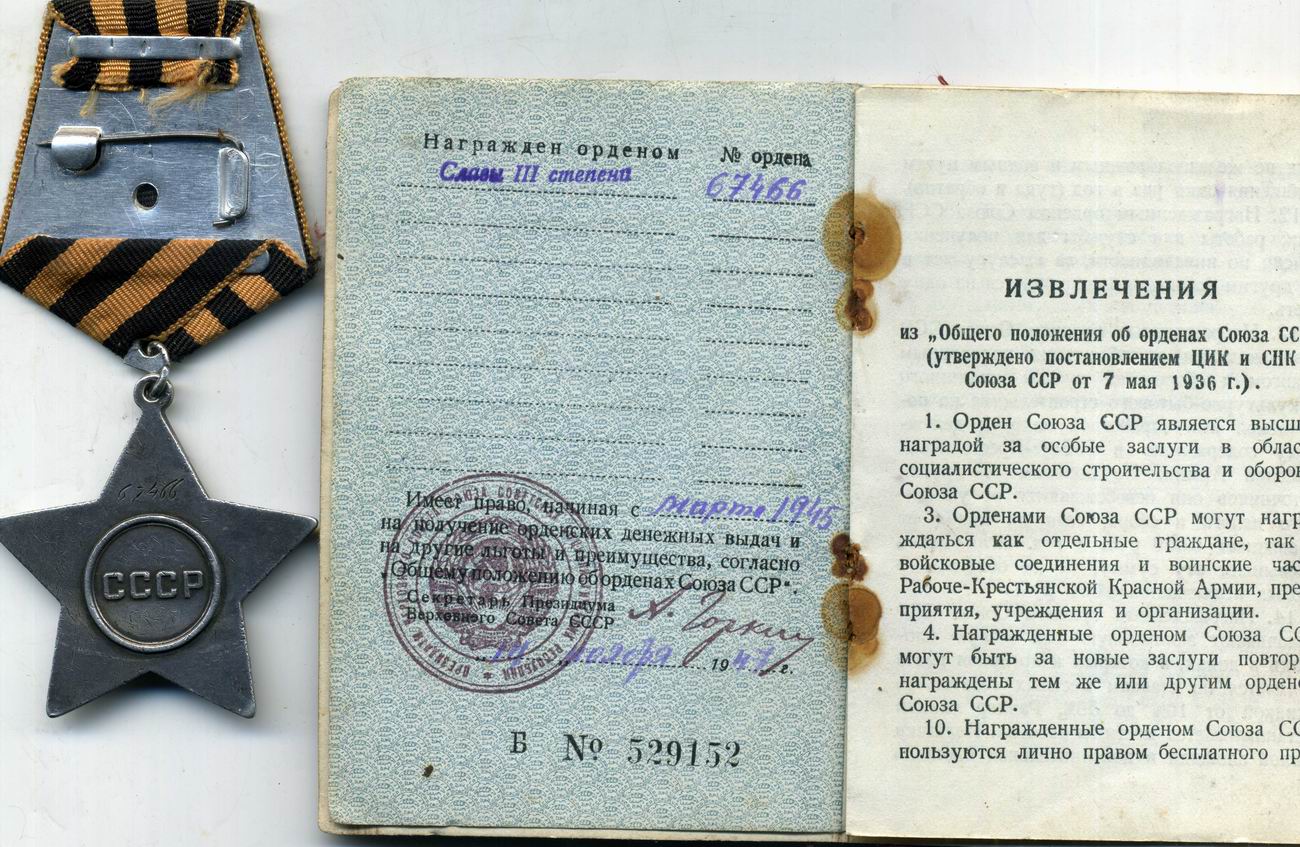 67466
СССР
Награжден орденом
№ ордена
Славы III степени
67466
Имеет право, начиная с марта 1945
на получение орденских денежных выдач и
на другие льготы и преимущества, согласно
„Общему положению об орденах Союза ССР“.
Секретарь Президиума
Верховного Совета СССР
А. Горкин
„14“ ноября 1947 г.
Б № 529152
ИЗВЛЕЧЕНИЯ
из „Общего положения об орденах Союза СС
(утверждено постановлением ЦИК и СНК
Союза ССР от 7 мая 1936 г.).
1. Орден Союза ССР является высш
наградой за особые заслуги в облас
социалистического строительства и оборон
Союза ССР.
3. Орденами Союза ССР могут нагр
ждаться как отдельные граждане, так
войсковые соединения и воинские час
Рабоче-Крестьянской Красной Армии, пре
приятия, учреждения и организации.
4. Награжденные орденом Союза СС
могут быть за новые заслуги повтор
награждены тем же или другим ордено
Союза ССР.
10. Награжденные орденом Союза СС
пользуются лично правом бесплатного пр